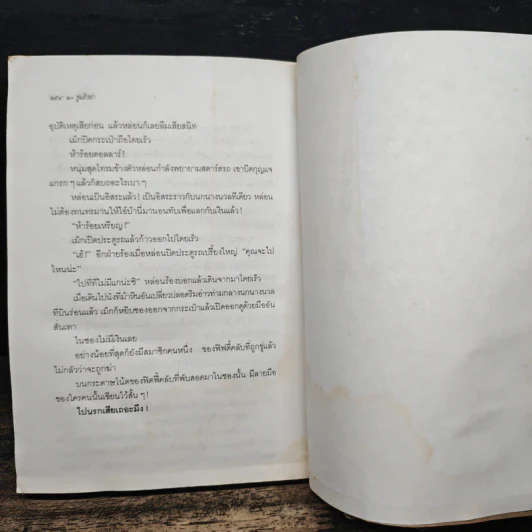 อุปัติเหตุเสียก่อน แล้วหล่อนก็เลยลืมเสียสนิท
เม็กปิดกระเป๋าถือโดยเร็ว
ห้าร้อยดอลลาร์!
หนุ่มสุดโทรมข้างตัวหล่อนกำลังพยายามสตาร์ตรถ เขาบิดกุญแจ
แกรก ๆ แล้วก็สบถอะไรเบา ๆ
หล่อนเป็นอิสระแล้ว! เป็นอิสระราวกับนกนางนวลทีเดียว หล่อน
ไม่ต้องทนทรมานให้ไอ้บ้านี่มานอนทับเพื่อแลกกับเงินแล้ว!
“ห้าร้อยเหรียญ!”
เม็กเปิดประตูรถแล้วก้าวออกไปโดยเร็ว
“เฮ้!” อีกฝ่ายร้องเมื่อหล่อนปิดประตูรถเปรี้ยงใหญ่ “คุณจะไป
ไหนน่ะ”
“ไปที่ที่ไม่มีแกน่ะซิ” หล่อนร้องบอกแล้วเดินจากมาโดยเร็ว
เมื่อเดินไปนั่งที่ม้าหินอันเปลี่ยวปลอดริมอ่าวท่ามกลางนกนางนวล
ที่บินร่อนแล้ว เม็กก็หยิบซองออกจากกระเป๋าแล้วเปิดออกดูด้วยมืออัน
สั่นเทา
ในซองไม่มีเงินเลย
อย่างน้อยที่สุดก็ยังมีสมาชิกคนหนึ่ง ของฟิฟตี้คลับที่ถูกขู่แล้ว
ไม่กลัวว่าจะถูกฆ่า
บนกระดาษโน้ตของฟิฟตี้คลับที่พับสอดมาในซองนั้น มีลายมือ
ของใครคนนั้นเขียนไว้สั้น ๆ!
ไปนรกเสียเถอะมึง!